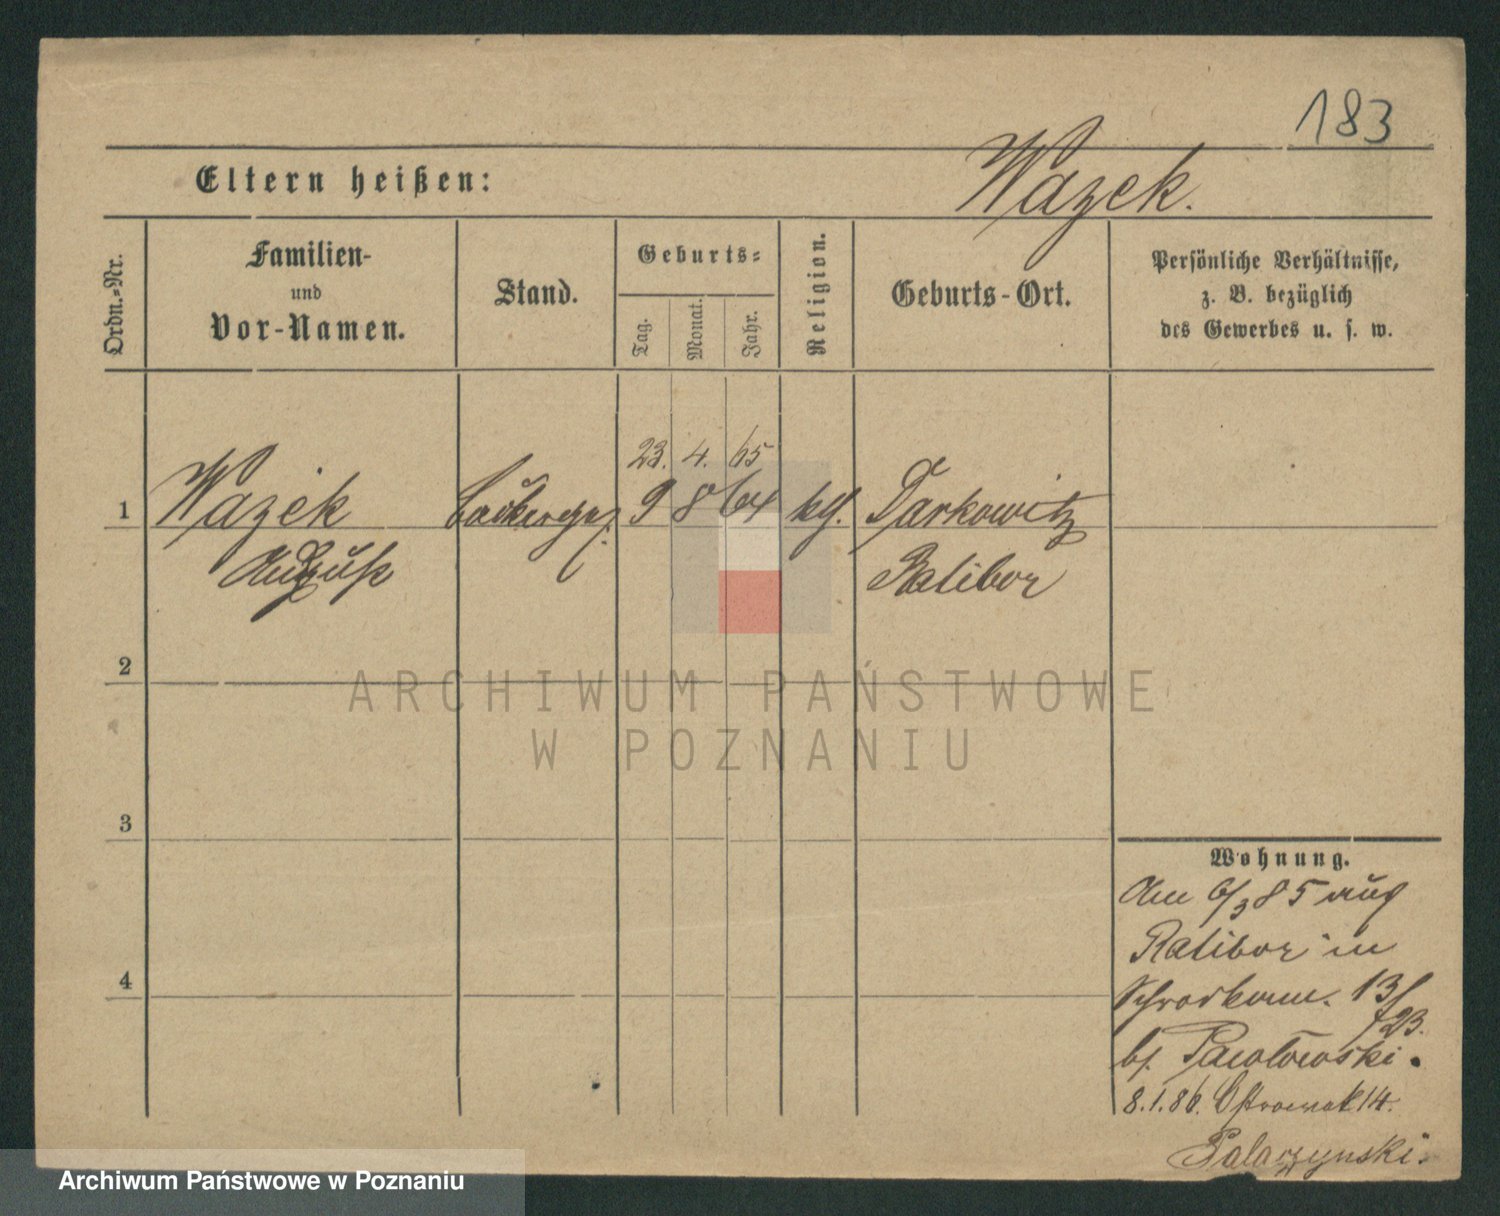 183
Wazek.
Eltern heißen:
Ordn.-Nr.
Familien-
und
Vor-Namen.
Stand.
Geburts-
Tag.
Monat.
Jahr.
Religion.
Geburts-Ort.
Persönliche Verhältnisse,
z. B. bezüglich
des Gewerbes u. s. w.
23. 4. 65
1 Wazek 9 8 64 Darkowitz
August Ratibor
2
3
4
Wohnung.
Am 6/3 85 aus
Ratibor in
13/
bj.
8.1.86. Ostrowek 14.
ARCHIWUM PAŃSTWOWE
W POZNANIU
Archiwum Państwowe w Poznaniu